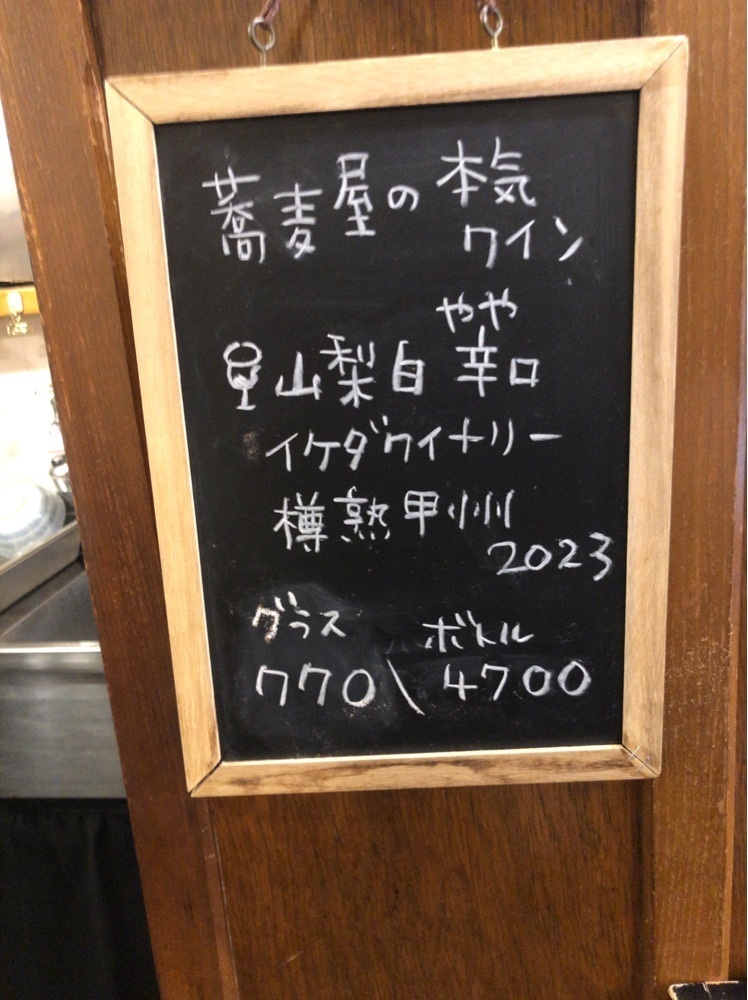 蕎麦屋の本気
ワイン
やや
山梨白 辛口
イケダワイナリー
樽熟甲州
2023
グラス ボトル
770 \ 4700